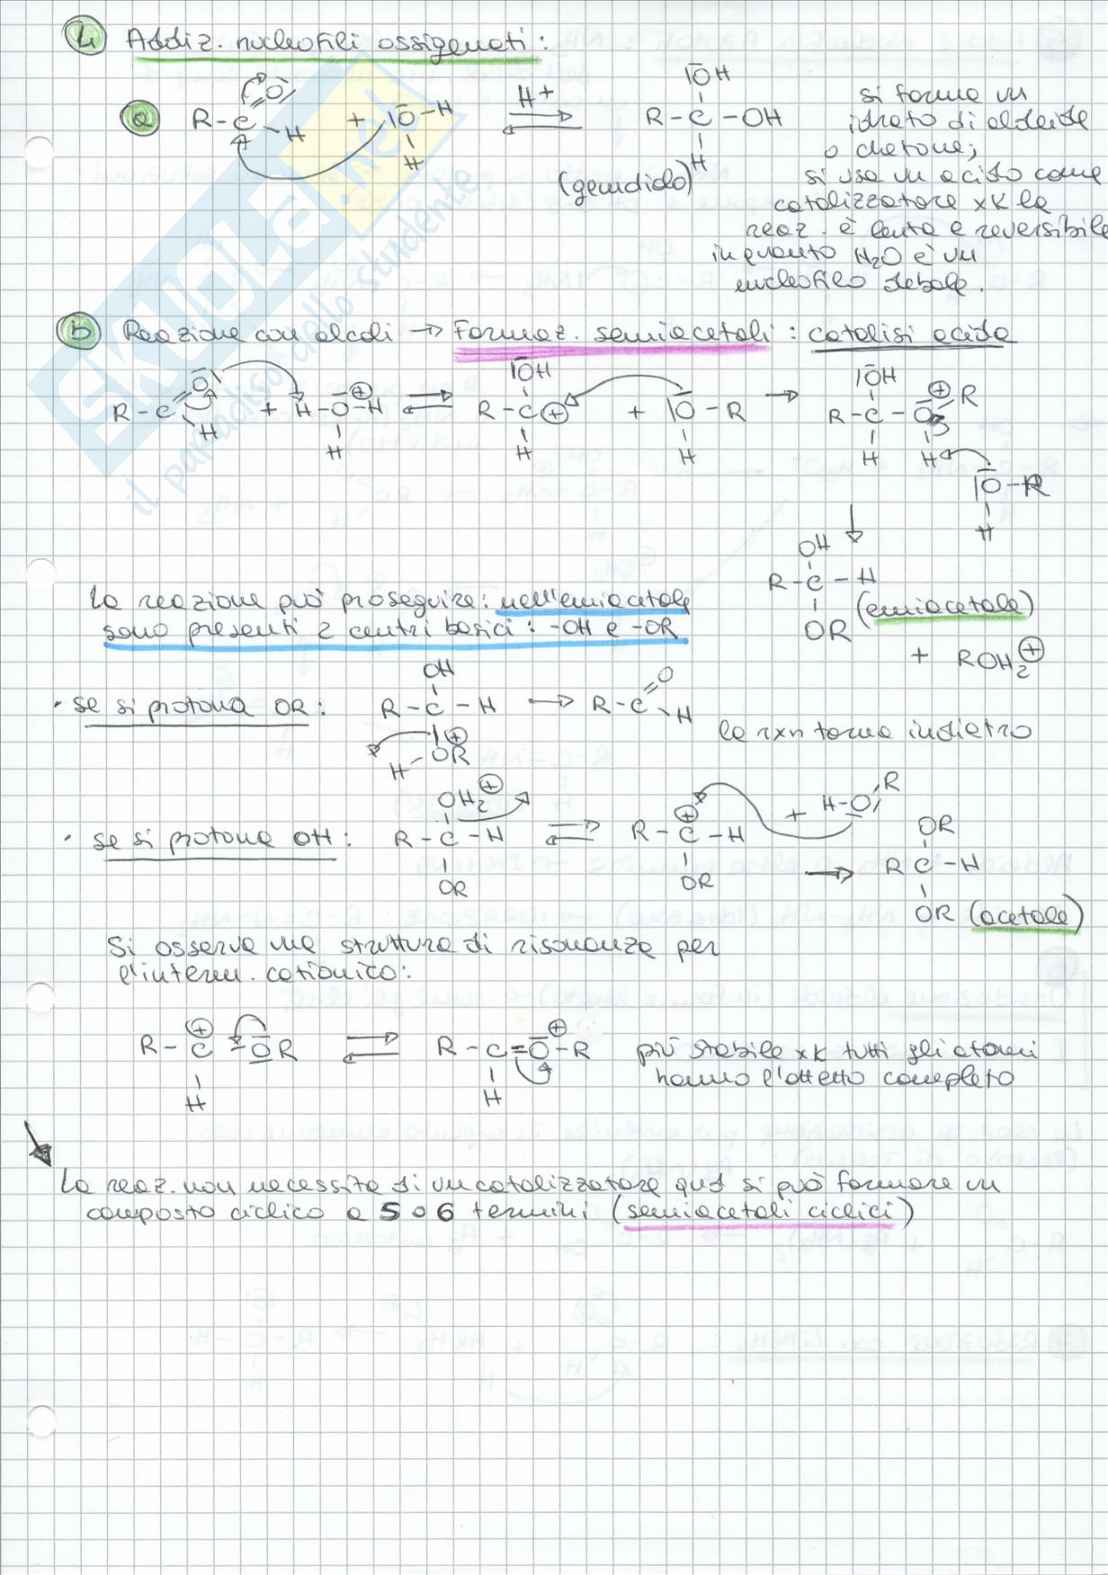 4 Addiz. nucleofili ossigenati:
a R-C O H + IO-H H H+ IOH R-C-OH H
(gemdiolo)
si forma un
idrato di aldeide
o chetone;
si usa un acido come
catalizzatore xK la
reaz. è lenta e reversibile
in quanto H2O è un
nucleofilo debole.
b Reazione con alcoli → Formaz. semiacetali: catalisi acida
R-C O H + H-O-H H ⊕ IOH R-C⊕ H + IO-R H → IOH R-C-O⊕ R H H
IO-R H
OH
R-C-H
OR (emiacetale)
+ ROH2⊕
La reazione può proseguire: nell'emiacetale
sono presenti 2 centri basici: -OH e -OR
• se si protona OR: OH R-C-H H-OR ⊕ → R-C O H
la rxn torna indietro
• se si protona OH: OH2⊕ R-C-H OR ⊕ R-C-H OR + H-O R → OR R C-H OR (acetale)
Si osserva una struttura di risonanza per
l'interm. cationico:
R-C⊕-OR H R-C=O⊕-R H
più stabile xK tutti gli atomi
hanno l'ottetto completo
La reaz. non necessita di un catalizzatore qnd si può formare un
composto ciclico a 5 o 6 termini (semiacetali ciclici)
SKUOLA.net
il paradiso dello studente